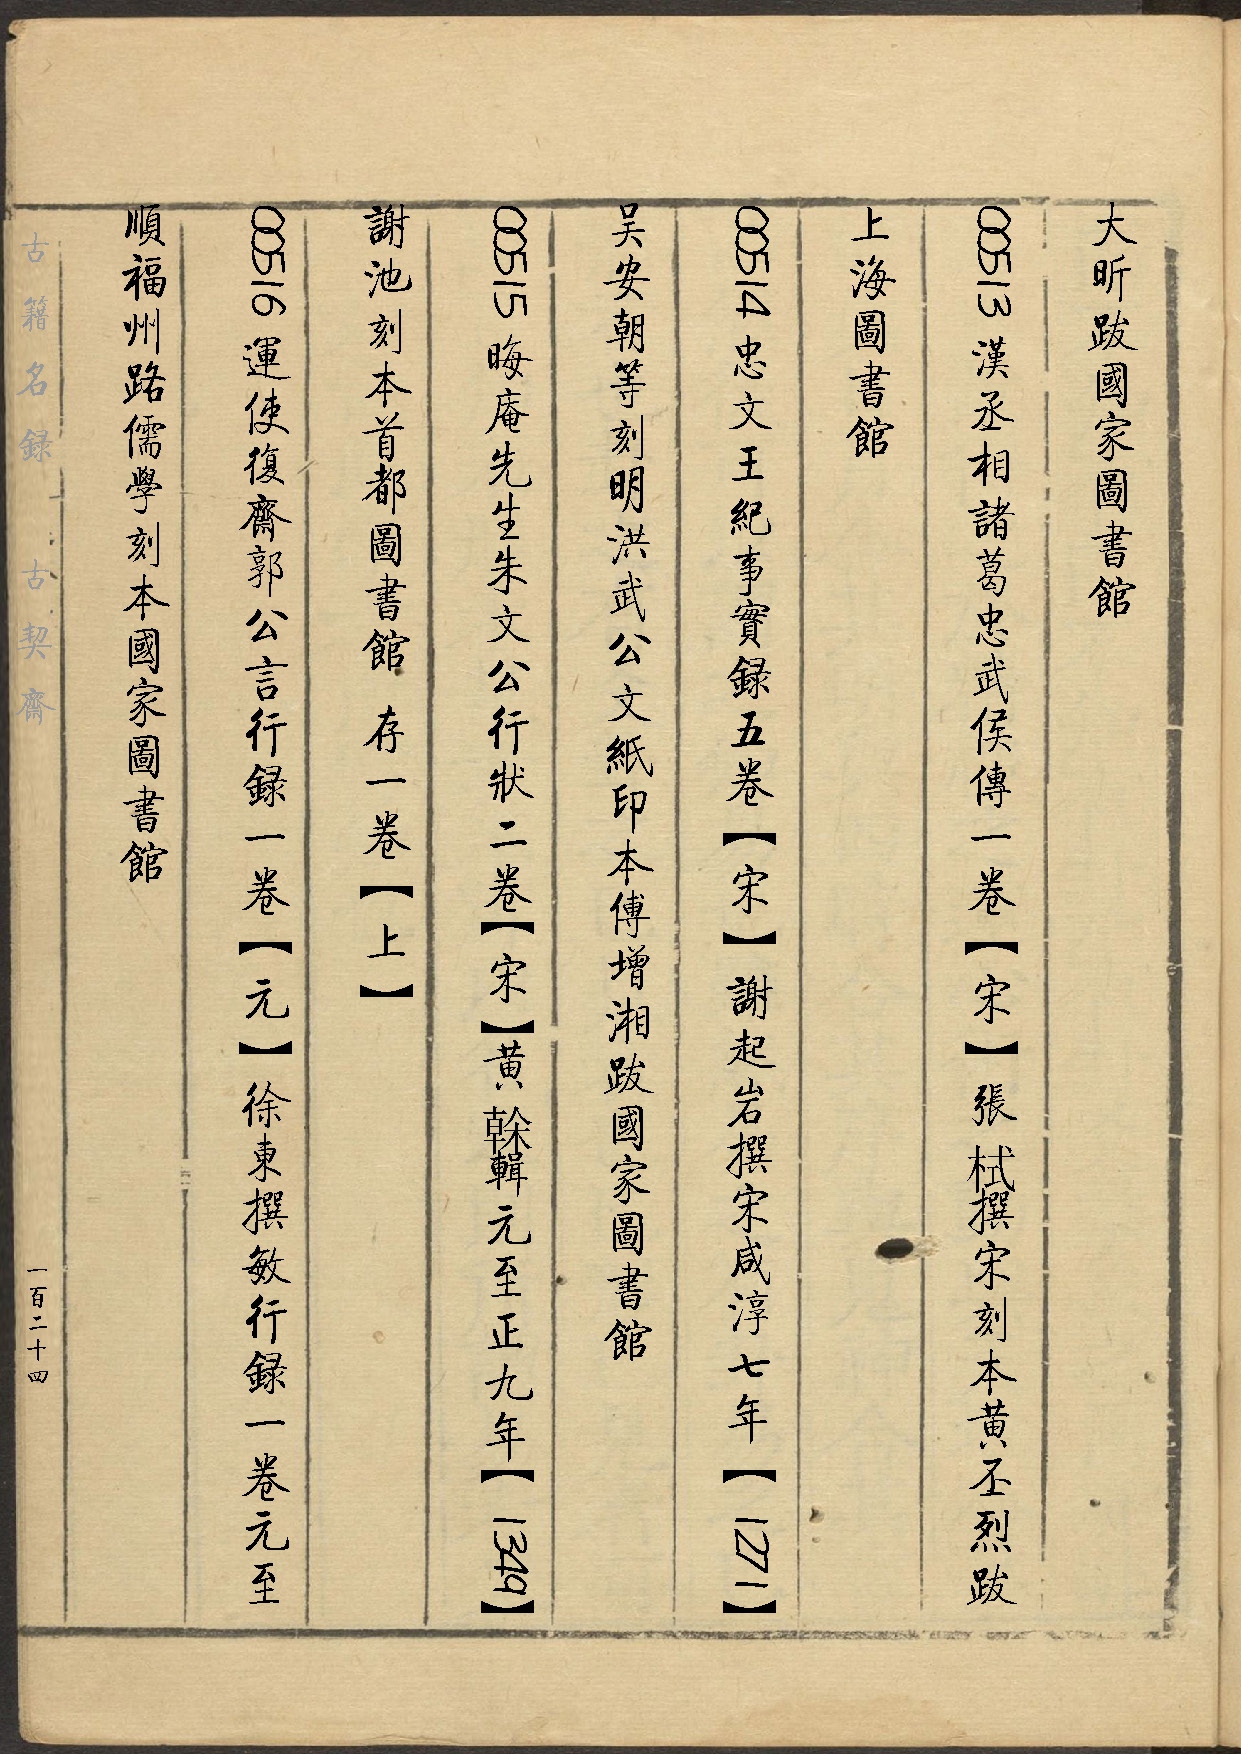 大昕跋國家圖書館
00513漢丞相諸葛忠武侯傳一卷【宋】張栻撰宋刻本黄丕烈跋
上海圖書館
00514忠文王紀事實録五卷【宋】謝起岩撰宋咸淳七年【1271】
吴安朝等刻明洪武公文紙印本傅增湘跋國家圖書館
00515晦庵先生朱文公行狀二卷【宋】黄榦輯元至正九年【1349】
謝池刻本首都圖書館 存一卷【上】
00516運使復齋郭公言行録一卷【元】徐東撰敏行録一卷元至
順福州路儒學刻本國家圖書館
古籍名録 古契齋
一百二十四